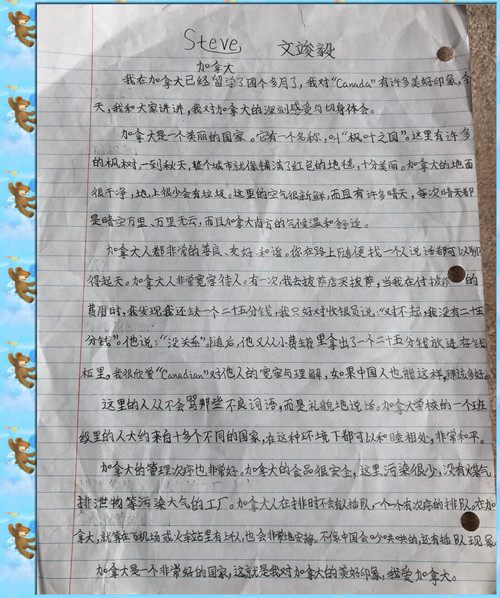 Steve 文竣毅
加拿大
我在加拿大已经留学了四个多月了,我对"Canada"有许多美好印象,今
天,我和大家讲讲,我对加拿大的深刻感受与切身体会。
加拿大是一个美丽的国家。它有一个名称,叫"枫叶之国"。这里有许多
的枫树,一到秋天,整个城市就像铺满了红色的地毯,十分美丽。加拿大的地面
很干净,地上很少会有垃圾。这里的空气很新鲜,而且有许多晴天,每次晴天都
是晴空万里、万里无云,而且加拿大南方的气候温和舒适。
加拿大人都非常的善良、友好、和谐。你在路上随便找一个人说话都可以聊
得起天。加拿大人非常宽容待人。有一次我去披萨店买披萨,当我在付披萨的
费用时,我发现我还缺一个二十五分钱,我只好对收银员说:"对不起,我没有二十五
分钱"。他说:"没关系"。随后,他又从小费罐里拿出了一个二十五分钱放进存钱
柜里。我很欣赏"Canadian"对他人的宽容与理解,如果中国人也能这样,那该多好。
这里的人从不会骂那些不良词语,而是礼貌地说话。加拿大学校的一个班
级里的人大约来自十多个不同的国家,在这种环境下都可以和睦相处,非常和平。
加拿大的管理次序也非常好。加拿大的食品很安全,这里污染很少,没有煤气
排泄物等污染大气的工厂。加拿大人在排时不会有人插队,一个一个有次序的排队。在加
拿大,就算在飞机场或火车站里有上人,也会非常地安静。不像中国会吵哄哄的,还有插队现象
加拿大是一个非常好的国家,这就是我对加拿大的美好印象,我爱加拿大。